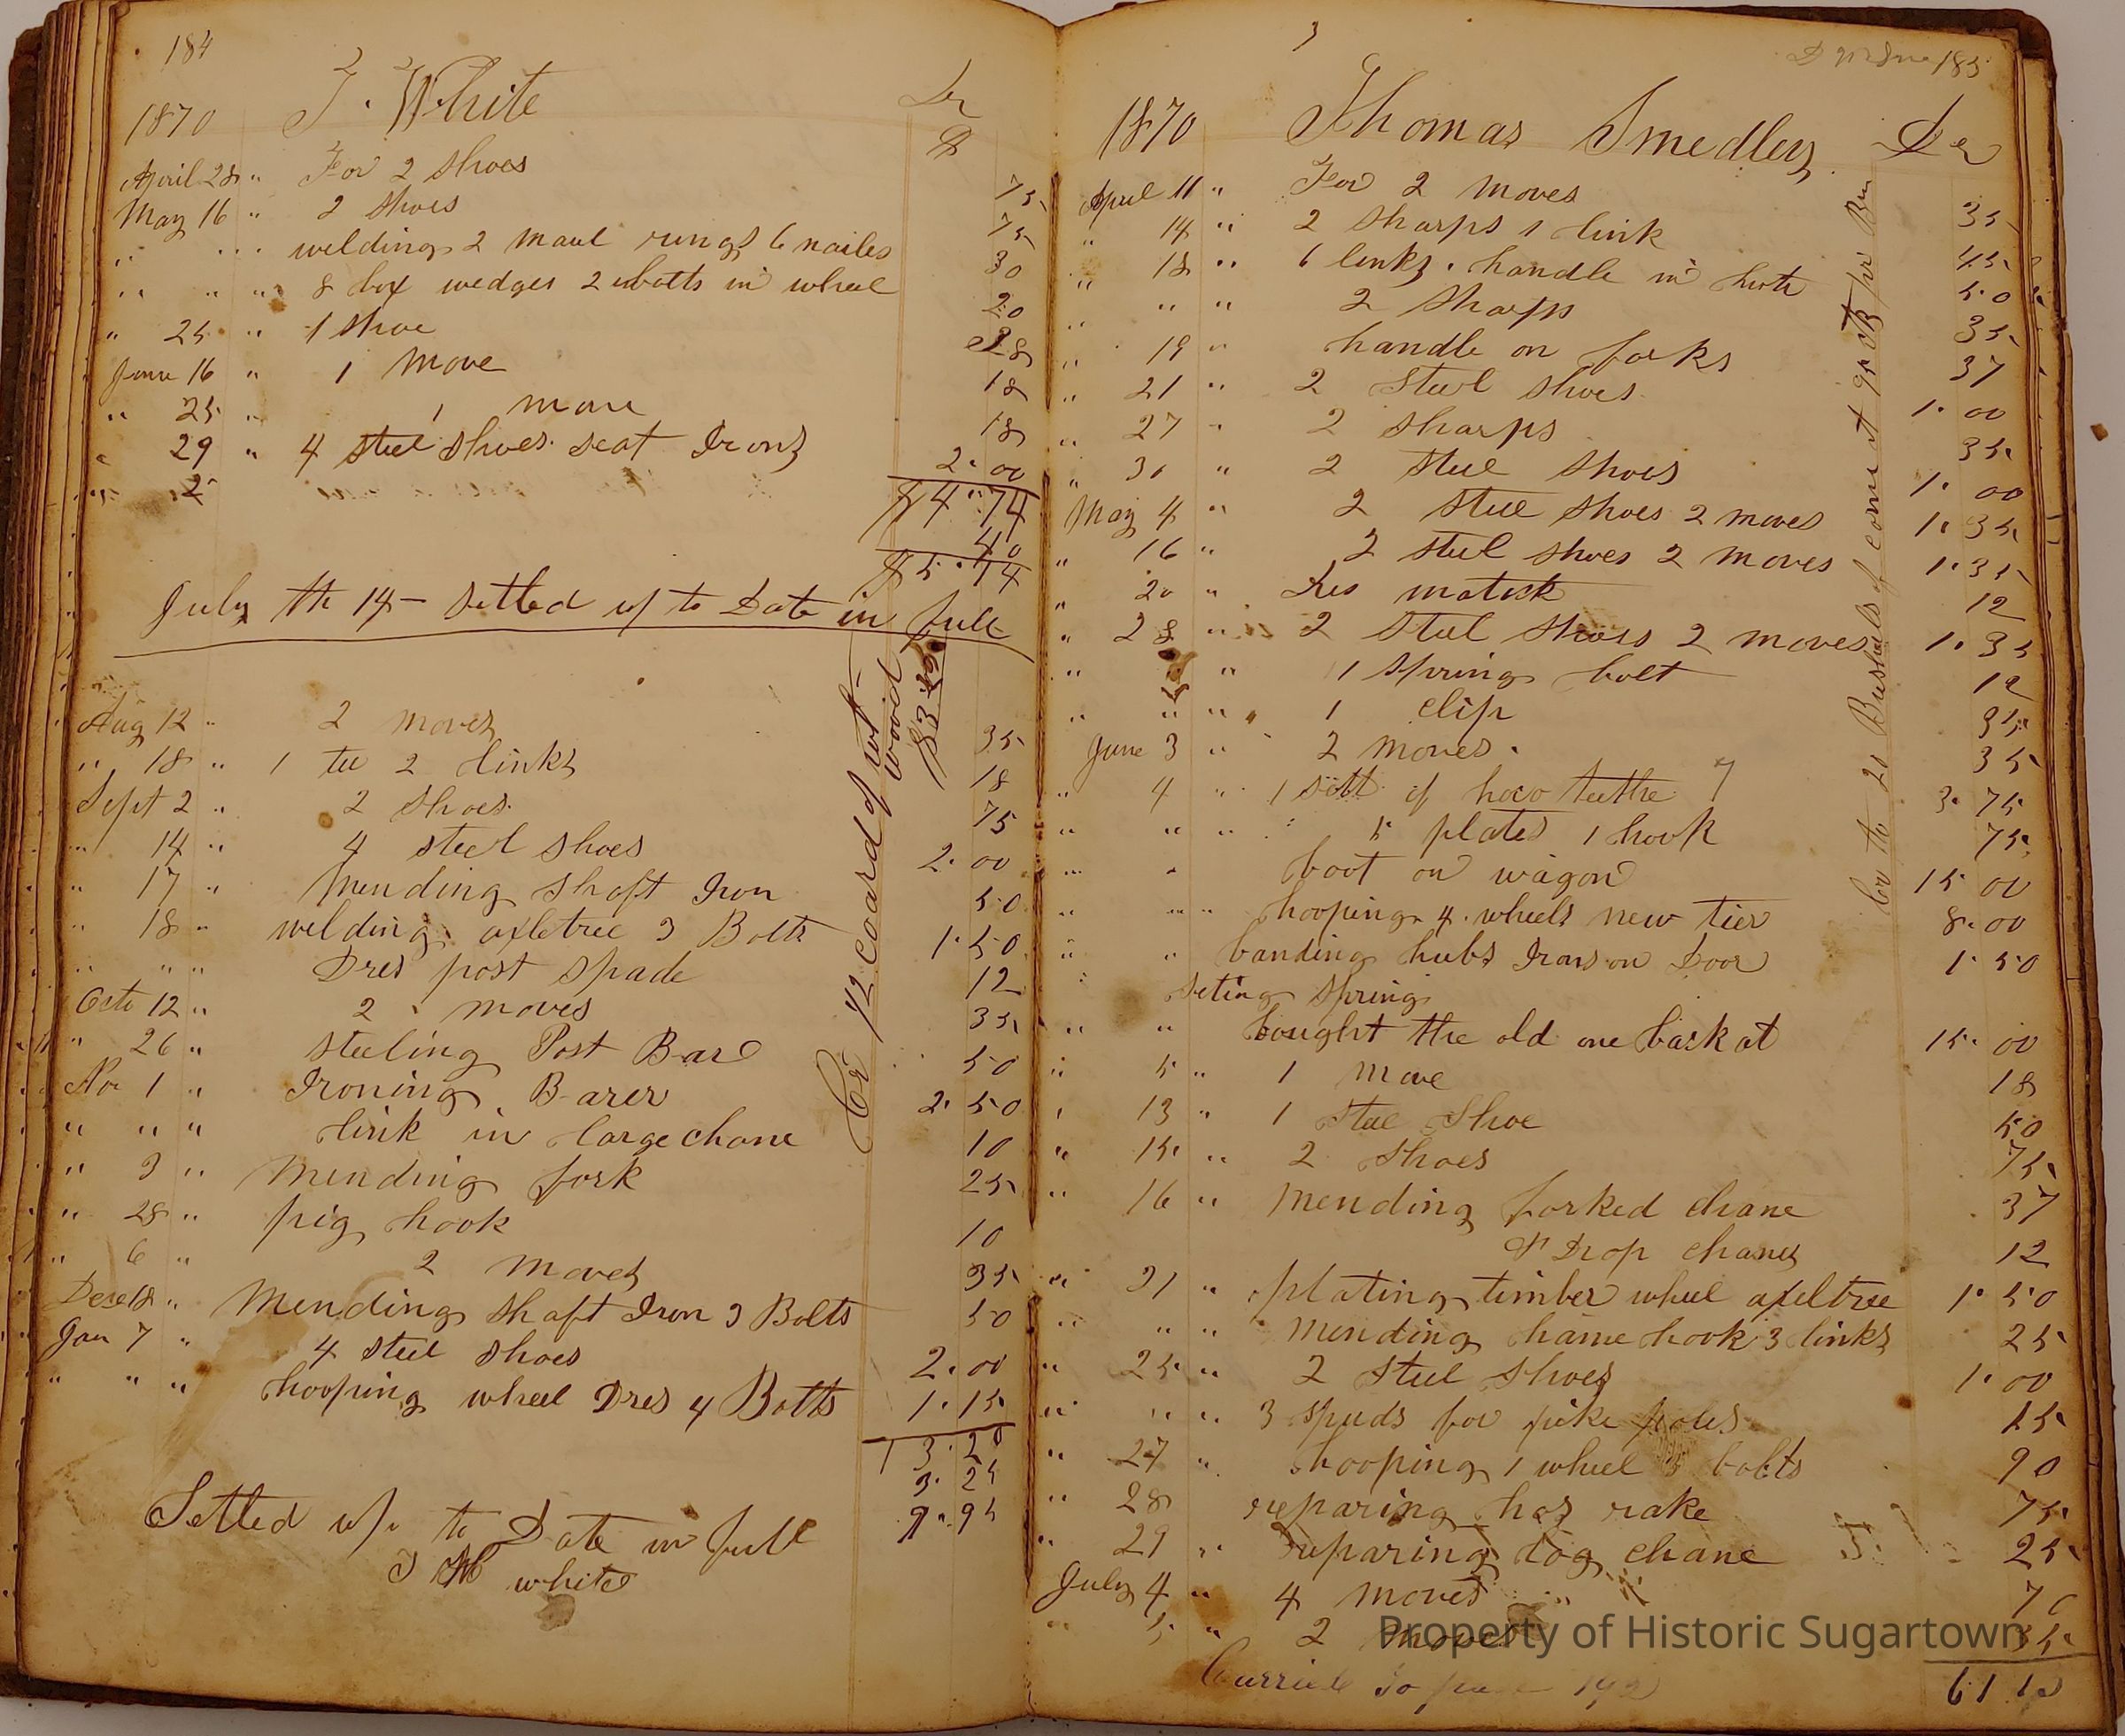 184
1870 T. White Dr
$
April 28 " For 2 Shoes 75
May 16 " 2 Shoes 75
" " welding 2 maul rings 6 nailes 30
" " " 8 box wedges 2 bolts in wheel 20
" 25 " 1 Shoe 38
June 16 " 1 Move 18
" 25 " 1 move 18
" 29 " 4 steel shoes seat Irons 2.00
$4.74
40
$5.14
July th 14 - Setled up to Date in full
Aug 12 " 2 moves 35
" 18 " 1 tee 2 links 18
Sept 2 " 2 Shoes 75
" 14 " 4 steel shoes 2.00
" 17 " Mending Shaft Iron 50
" 18 " welding axletree 3 Bolts 1.50
" " " Dres post spade 12
Octo 12 " 2 moves 35
" 26 " steeling Post Bare 50
Nov 1 " Ironing Barer 2.50
" " " link in large chane 10
" 3 " Mending fork 25
" 28 " pig hook 10
" 6 " 2 moves 35
Dece 18 " Mending Shaft Iron 3 Bolts 50
Jan 7 " 4 steel shoes 2.00
" " " hooping wheel Dres 4 Bolts 1.15
13.20
3.25
9.95
Setled up to Date in full
white
Cr 1/2 coard of wood
$3.25
3
185
1870 Thomas Smedley Dr
April 11 " For 2 moves 35
" 14 " 2 sharps 1 link 45
" 18 " 6 links. handle in 50
" " " 2 sharps 35
" 19 " handle on forks 37
" 21 " 2 Steel shoes 1.00
" 27 " 2 sharps 35
" 30 " 2 steel shoes 1.00
May 4 " 2 steel shoes 2 moves 1.35
" 16 " 2 steel shoes 2 moves 1.35
" 20 " Dres matock 12
" 28 " 2 steel shoes 2 moves 1.35
" " " 1 spring bolt 12
" " " 1 clip 35
June 3 " 2 moves. 35
" 4 " 1 sett of how teethe 7 3.75
" " " 5 plates 1 hook 75
" " boot on wagon 15 00
" " " hooping 4 wheels new tier 8.00
" " banding hubs Irons on Door 1 50
seting spring
" " bought the old one back at 15.00
" 5 " 1 move 18
" 13 " 1 Stee Shoe 50
" 15 " 2 Shoes 75
" 16 " Mending forked chane 37
& Drop chanes 12
" 21 " plating timber wheel axeltree 1.50
" " " mending hame hook 3 links 25
" 25 " 2 Steel Shoes 1.00
" " " 3 spuds for pike poles 25
" 27 " hooping 1 wheel bolts 90
" 28 reparing hay rake 75
" 29 " reparing log chane 25
July 4 " 4 moves 70
" 5 " 2 moves 35
61
Cr to 20 Bushels of corn at 95 cts per Bu
Property of Historic Sugartown